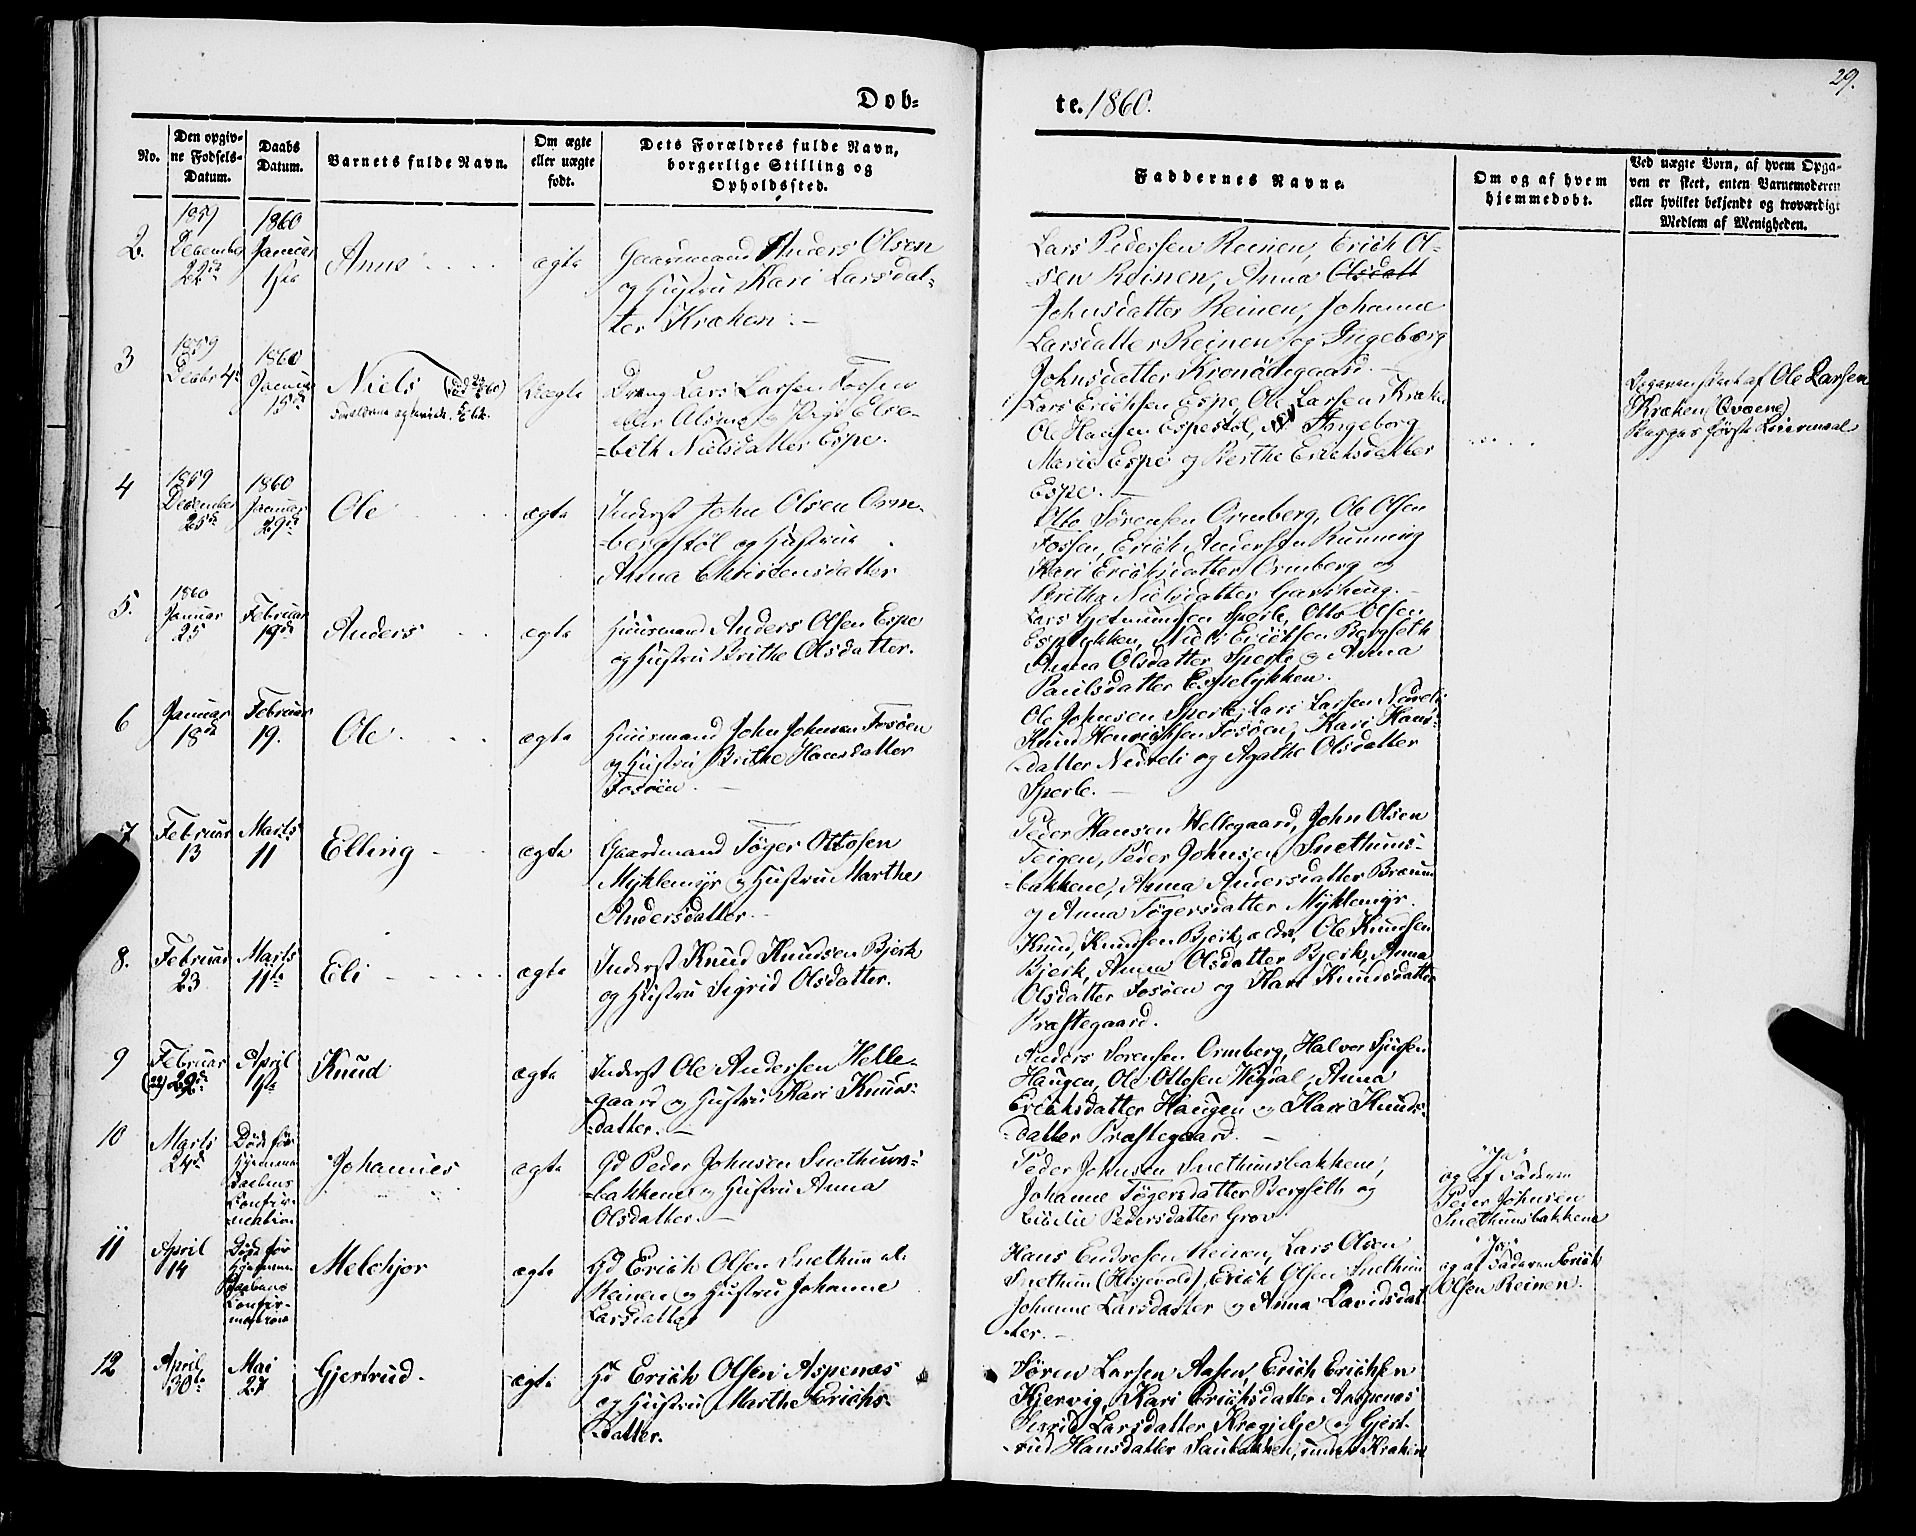 29.
Dob-
te. 1860.
No.
Den opgiv-
ne Fodsels-
Datum.
Daabs
Datum.
Barnets fulde Navn.
Om ægte
eller uægte
født.
Dets Forældres fulde Navn,
borgerlige Stilling og
Opholdssted.
Faddernes Navne.
Om og af hvem
hjemmedobt.
Ved uægte Born, af hvem Opga-
ven er skeet, enten Barnemoderen
eller hvilket bekjendt og troværdigt
Medlem af Menigheden.
2.
1859
December
22de
1860
Januar
1ste
Anne
ægte
Gaardmand Anders Olsen
og Hustru Kari Larsdat-
ter Kræken.
Lars Pedersen Reinen, Erich Ol-
sen Reinen, Anna Olsdatt
Johnsdatter Reinen, Johanne
Larsdatter Reinen og Ingeborg
Johnsdatter Kronödegaard.
3
1859
Decbr 4de
1860
Januar
15de
Niels
Uægte
Dreng Lars Larsen Fossen
eller og Pige Else-
beth Nielsdatter Espe.
Lars Erichsen Espe, Ole Larsen Kræken
Ole Hansen Espestöl, Ingeborg
Marie Espe og Berthe Erichsdatter
Espe.
af Ole Larsen
Kræken (Ovaene)
Begges første Leiermaal
4
1859
December
25de
1860
Januar
29de
Ole
ægte
Inderst John Olsen Orm-
bergstöl og Hustrue
Anna Christensdatter
Otto Sörensen Ormberg, Ole Olsen
Fossen, Erich Andersen Running
Kari Erichsdatter Ormberg og
Britha Nielsdatter Garsheug.
5.
1860
Januar
25
Februar
19de
Anders
ægte
Huusmand Anders Olsen Espe
og Hustru Brithe Olsdatter.
Lars Gjetmundsen Sperle, Otto Olsen
Espelykken, Niels Erichsen Bergseth
Anna Olsdatter Sperle og Anna
Paulsdatter Espelykken.
6
Januar
18de
Februar
19.
Ole
ægte
Huusmand John Johnsen Fosöen
og Hustru Brithe Hansdatter
Fosöen
Ole Johnsen Sperle, Lars Larsen Nedreli
Knud Henrichsen Fosöen, Kari Hans-
datter Nedreli og Agathe Olsdatter
Sperle.
7
Februar
13
Marts
11
Elling
ægte
Gaardmand Töger Ottosen
Myklemyr og Hustru Marthe
Andersdatter.
Peder Hansen Hellegaard, John Olsen
Teigen, Peder Johnsen Snethuns-
bakkene, Anna Andersdatter
og Anna Tögersdatter Myklemyr.
8.
Februar
23
Marts
11te
Eli
ægte
Inderst Knud Knudsen Bjerk
og Hustru Sigrid Olsdatter.
Knud Knudsen Bjerk, ældr, Ole Knudsen
Bjerk, Anna Olsdatter Bjerk, Anna
Olsdatter Fosöen og Kari Knudsdatter
Præstegaard.
9
Februar
(22) 22de
April
1ste
Knud
ægte
Inderst Ole Andersen Helle-
gaard og Hustru Kari Knuds-
datter.
Anders Sörensen Ormberg, Halvor Sjursen
Haugen, Ole Ottosen Vigdal, Anna
Erichsdatter Haugen og Kari Knuds-
datter Præstegaard.
10
Marts
24de
Död för
Hjemme
Daabens
Confir-
mation
Johannes
ægte
Gd Peder Johnsen Snethuns-
bakkene og Hustru Anna
Olsdatter.
Peder Johnsen Snethunsbakkene,
Johanne Tögersdatter Bergseth og
Pedersdatter Grov.
"Ja"
og af Faderen
Peder Johnsen
Snethunsbakkene
11
April
14
Död för
Hjemme
Daabens
Confir-
mation
Melchjor
ægte
Gd Erich Olsen Snethun al.
Reinen og Hustru Johanne
Larsdatter
Hans Endresen Reinen, Lars Olsen
Snethun Erich Olsen Snethun
Johanne Larsdatter og Anna Davidsdat-
ter.
"Ja"
og af Faderen Erich
Olsen Reinen.
12
April
30te
Mai
27
Gjertrud.
ægte
Gd Erich Olsen Aspenæs
og Hustru Marthe Erichs-
datter.
Sören Larsen Aasen, Erich Erichsen
Kjervig, Kari Erichsdatter Aspenæs
Sigrid Larsdatter og Gjert-
rud Hansdatter Saubakken, under Kræken